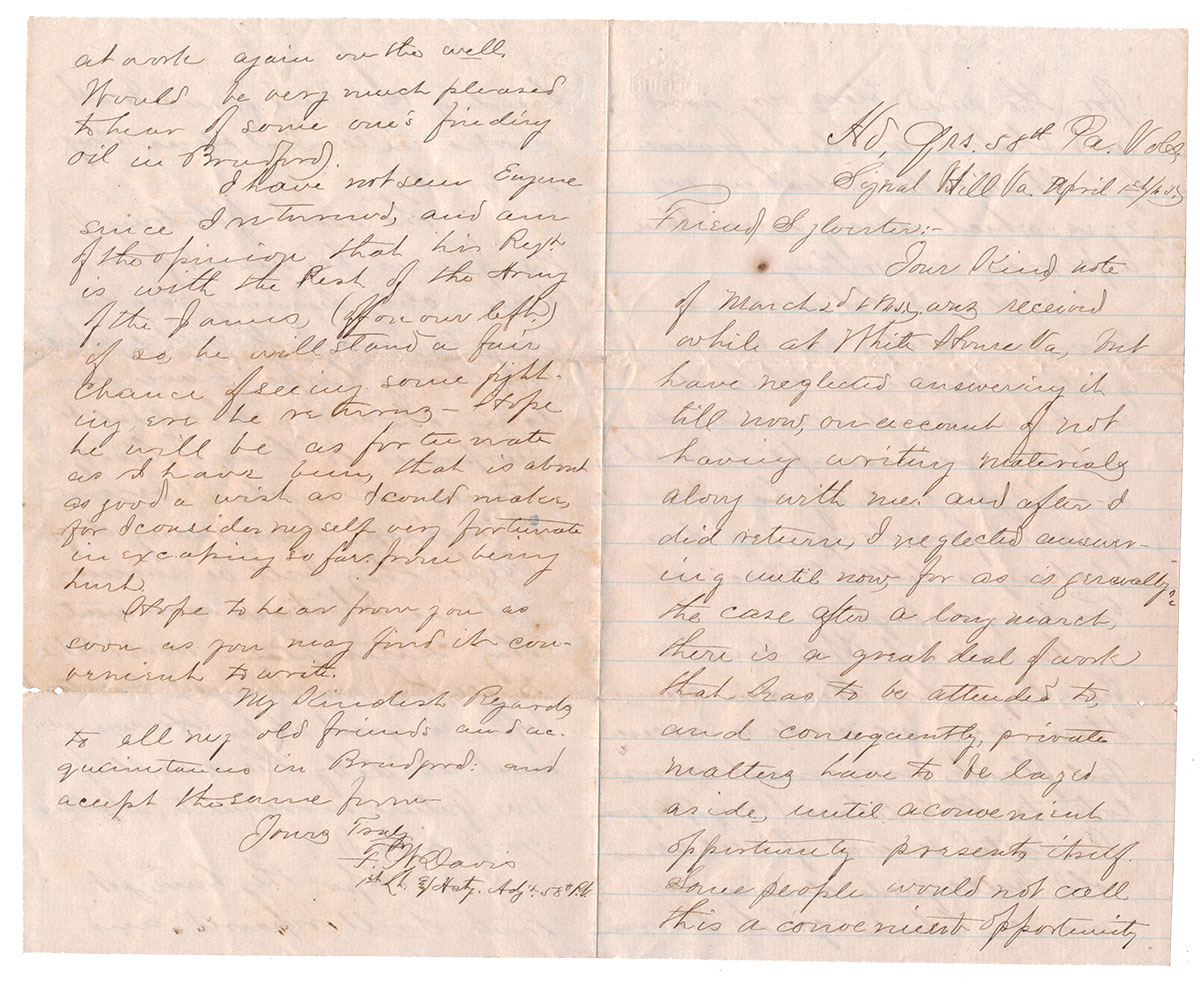 Hd, Qrs. 58th Pa. Vols,
Signal Hill Va. April 1st/65,
Friend Sylvester:-
Your Kind note
of March 2d was received
while at White House Va, but
have neglected answering it
till now, on account of not
having writing materials
along with me. and after I
did return, I neglected answer-
ing until now, for as is generally
the case after a long march,
there is a great deal of work
that has to be attended to,
and consequently, private
matters have to be layed
aside, until a convenient
opportunity presents itself.
Some people would not call
this a convenient opportunity
at work again on the well.
Would be very much pleased
to hear of some one's finding
oil in Bradford.
I have not seen Eugene
since I returned, and am
of the opinion that his Regt
is with the Rest of the Army
of the James, (off on our left.)
if so, he will stand a fair
chance of seeing some fight-
ing, ere he returns - Hope
he will be as fortunate
as I have been, that is about
as good a wish as I could make,
for I consider myself very fortunate
in excaping so far from being
hurt.
Hope to hear from you as
soon as you may find it con-
venient to write.
My Kindest Regards
to all my old friends and ac-
quaintances in Bradford: and
accept the same from-
Yours Truly
F. W Davis
1st Lt. & Actg. Adjt. 58th P.V.